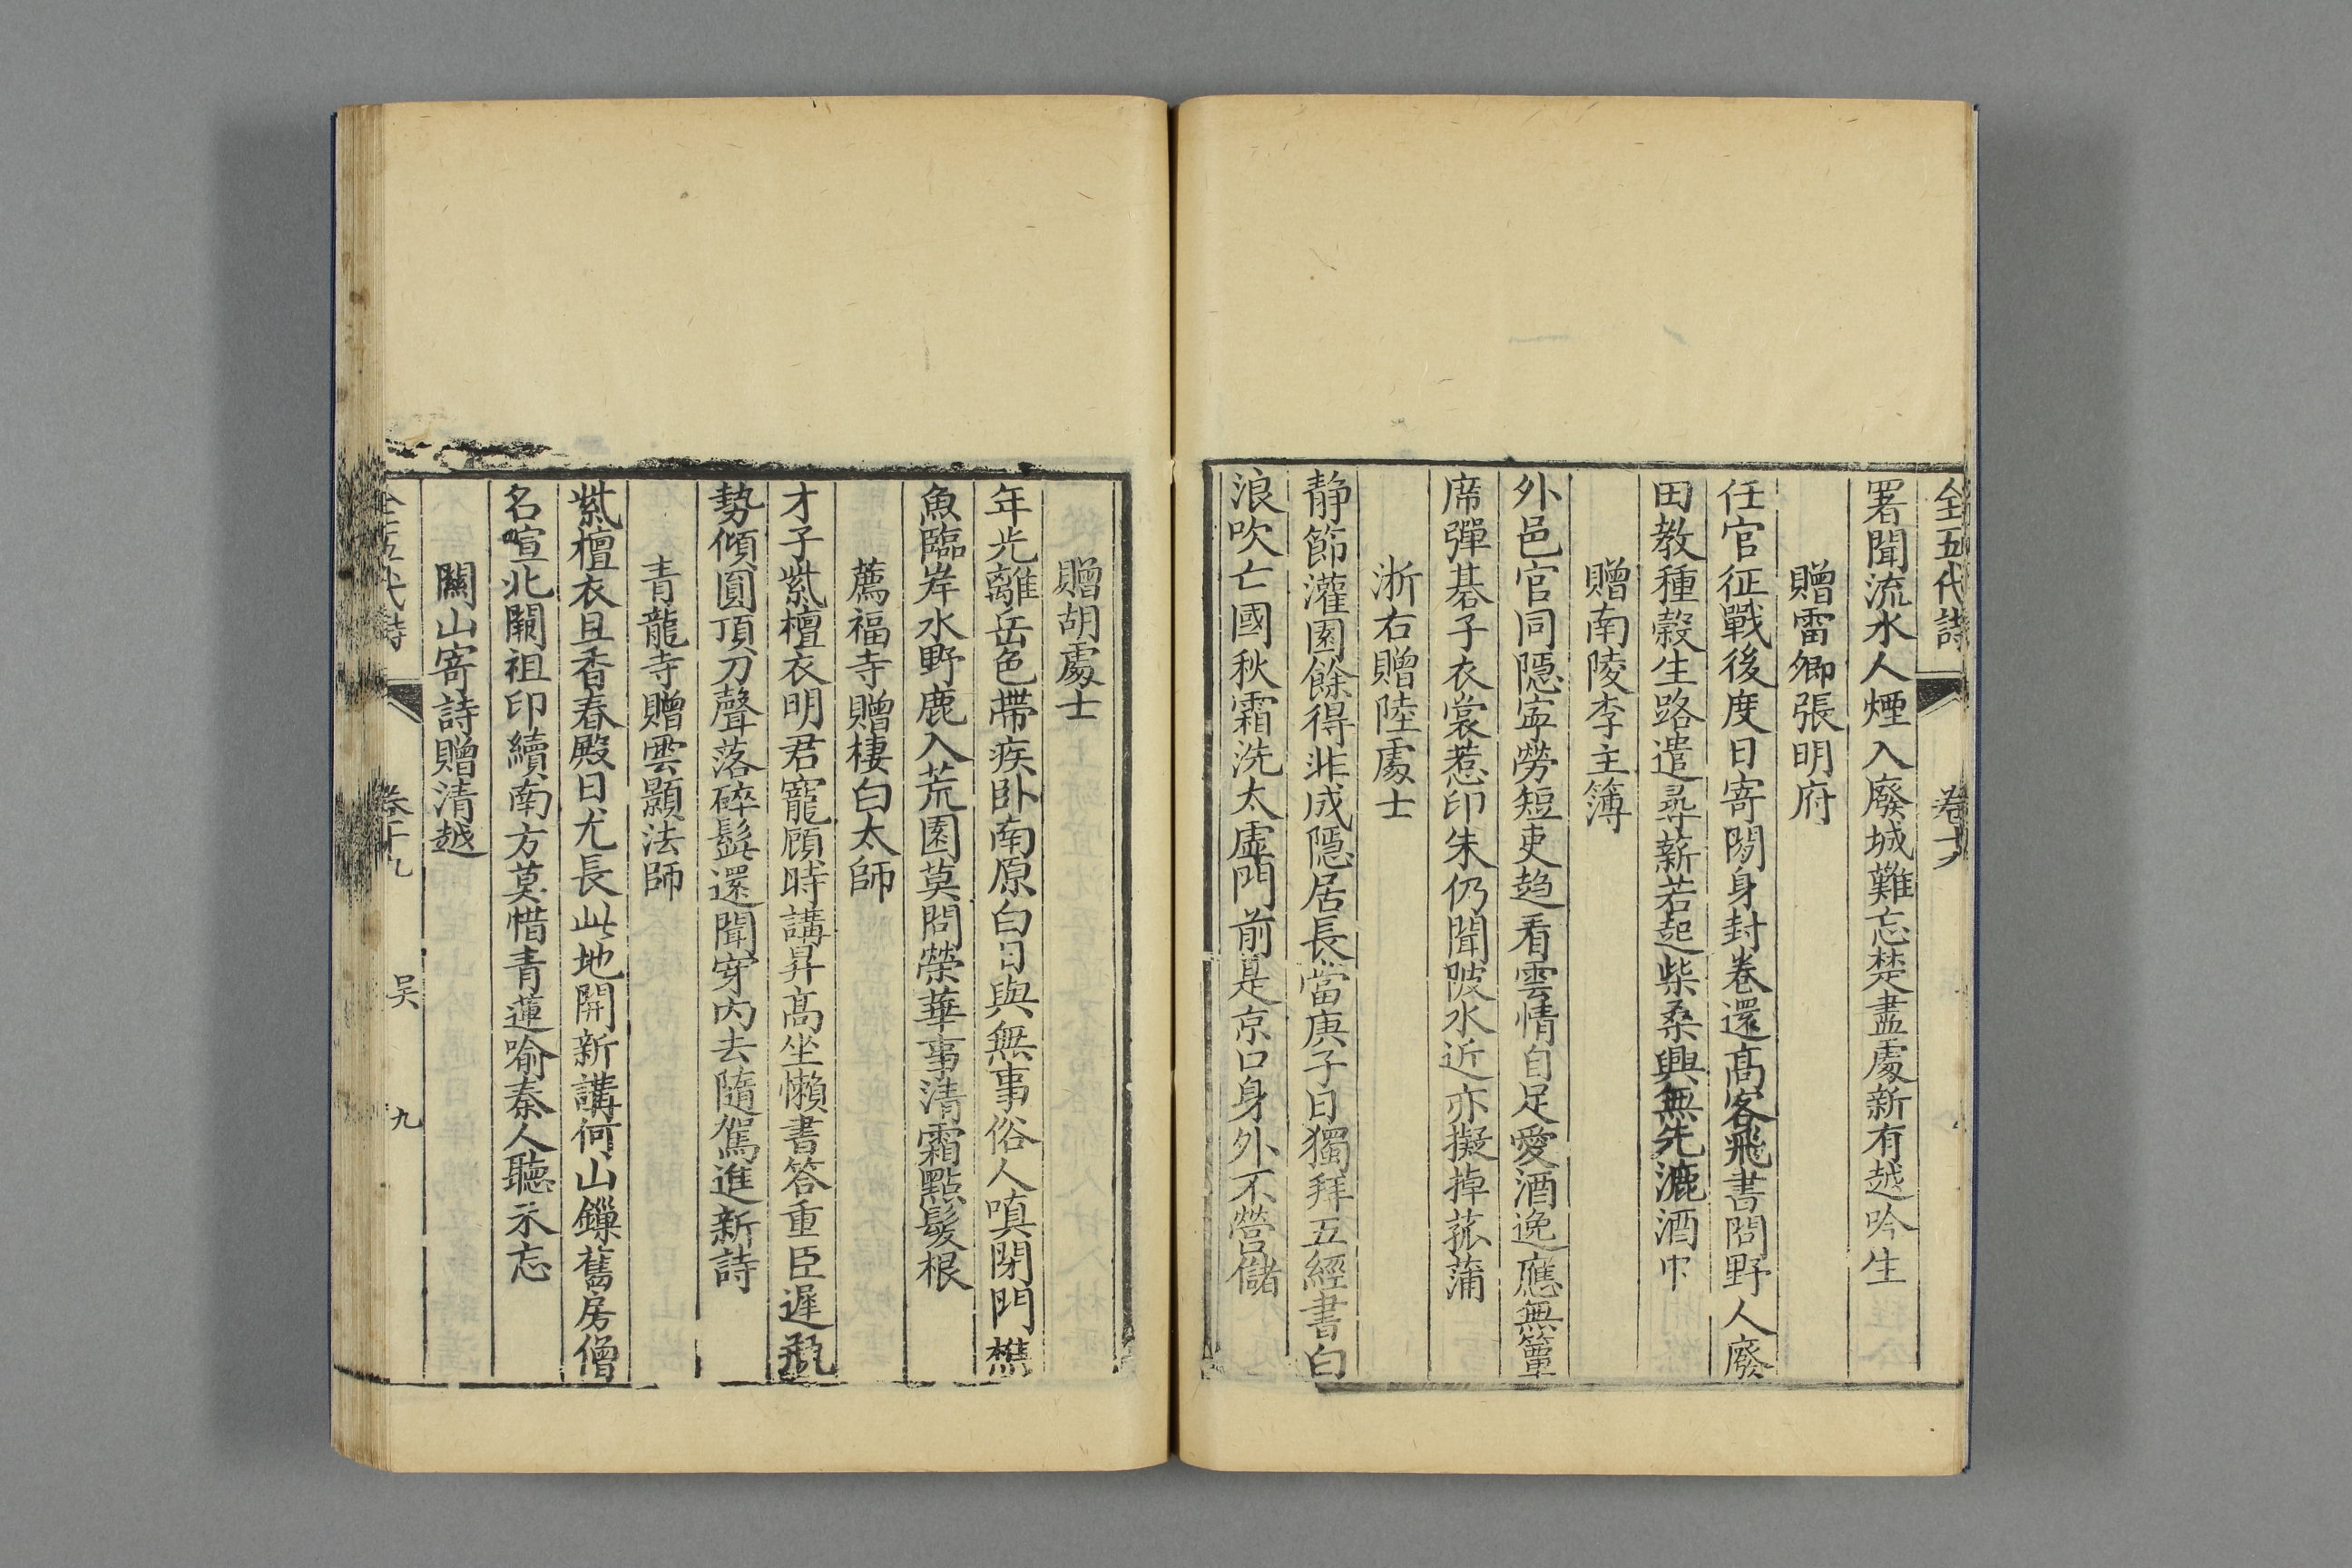 全五代詩 卷十九
署聞流水人煙入廢城難忘楚盡處新有越吟生
贈雷卿張明府
任官征戰後度日寄閒身封卷還高客飛書問野人廢
田教種穀生路遣尋薪若起柴桑興無先漉酒巾
贈南陵李主簿
外邑官同隱寧勞短吏趋看雲情自足愛酒逸應無簟
席彈棊子衣裳惹印朱仍聞陂水近亦擬掉菰蒲
浙右贈陸處士
静節灌園餘得非成隱居長當庚子日獨拜五經書白
浪吹亡國秋霜洗太虛門前是京口身外不營儲
贈胡處士
年光離岳色帶疾卧南原白日與無事俗人嗔閉門樵
魚臨岸水野鹿入荒園莫問榮華事清霜點髮根
薦福寺贈棲白太師
才子紫檀衣明君寵顧時講昇高坐懶書答重臣遲瓶
勢傾圓頂刀聲落碎髭還聞穿内去隨駕進新詩
青龍寺贈雲顥法師
紫檀衣且香春殿日尤長此地開新講何山鏁舊房僧
名喧北闕祖印續南方莫惜青蓮喻秦人聽示忘
關山寄詩贈清越
全五代詩 卷十九 吴 九